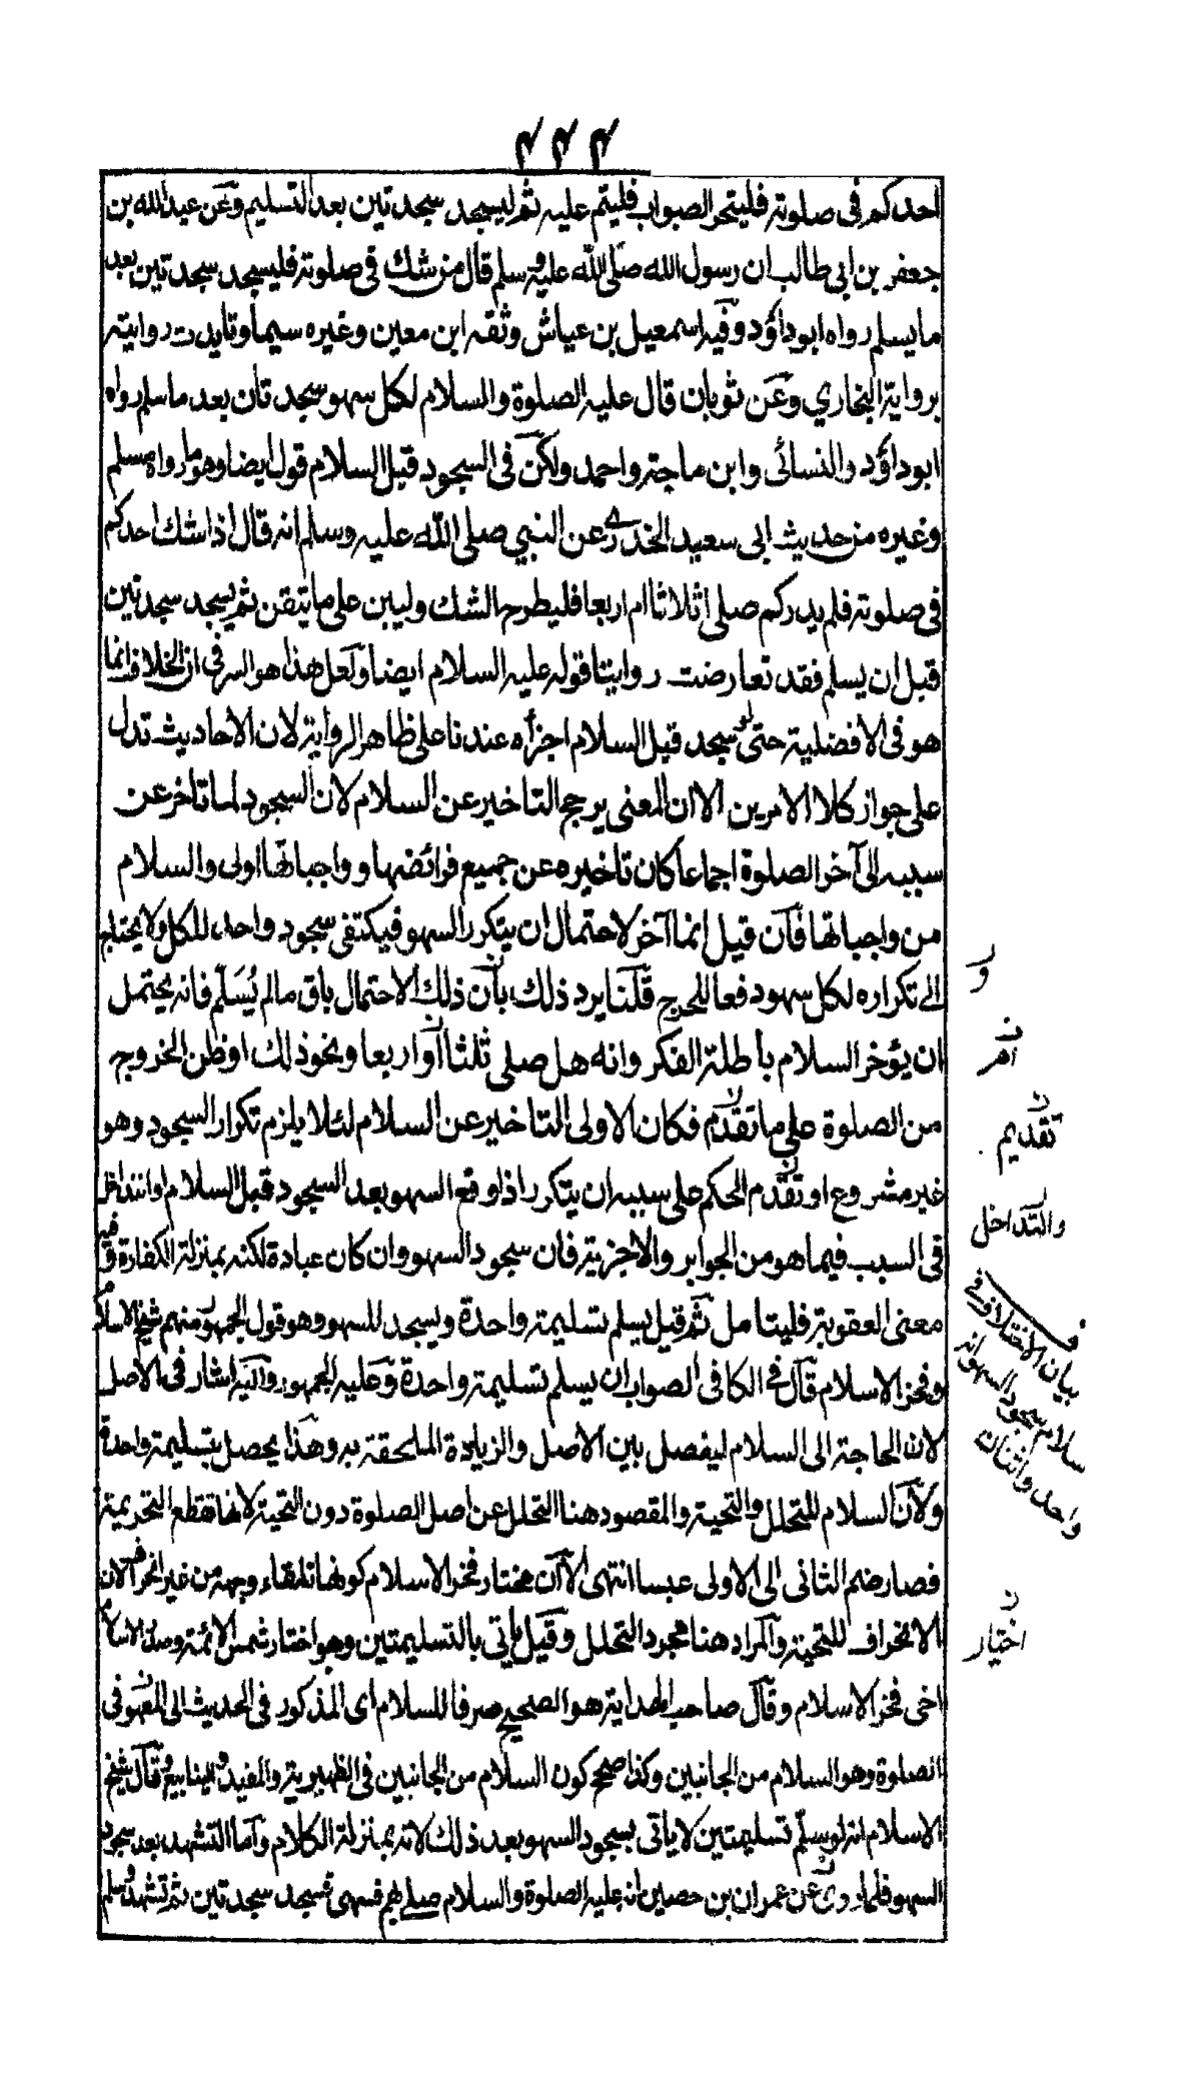 ٤٤٤
احدكم فى صلوته فليتحر الصواب فليتم عليه ثم ليسجد سجدتين بعد التسليم وعن عبد الله بن
جعفر بن ابى طالب ان رسول الله صلى الله عليه وسلم قال من شك فى صلوته فليسجد سجدتين بعد
ما يسلم رواه ابو داؤد وفيه اسمعيل بن عياش وثقه ابن معين وغيره سيما وتايدت روايته
برواية البخاري وعن ثوبان قال عليه الصلوة والسلام لكل سهو سجدتان بعد ما سلم رواه
ابو داؤد والنسائى وابن ماجة واحمد ولكن فى السجود قبل السلام قول ايضا وهو ما رواه مسلم
وغيره من حديث ابى سعيد الخدري عن النبي صلى الله عليه وسلم انه قال اذا شك احدكم
فى صلوته فلم يدركم صلى اثلاثا ام اربعا فليطرح الشك وليبن على ما تيقن ثم يسجد سجدتين
قبل ان يسلم فقد تعارضت روايتا قوله عليه السلام ايضا ولعل هذا هو السر فى ان الخلاف انما
هو فى الافضلية حتى لو سجد قبل السلام اجزأه عندنا على ظاهر الرواية لان الاحاديث تدل
على جواز كلا الامرين الا ان المعنى يرجح التاخير عن السلام لان السجود لما تاخر عن
سببه الى آخر الصلوة اجماعا كان تاخيره عن جميع فرائضها وواجباتها اولى والسلام
من واجباتها فان قيل انما آخر لاحتمال ان يتكرر السهو فيكتفى سجود واحد للكل ولا يحتاج
الى تكراره لكل سهو دفعا للحرج قلنا يرد ذلك بان ذلك الاحتمال باق ما لم يُسَلّم فانه يحتمل
ان يؤخر السلام بأطلة الفكر وانه هل صلى ثلثا او اربعا ونحو ذلك او ظن الخروج
من الصلوة على ما تقدم فكان الاولى التاخير عن السلام لئلا يلزم تكرار السجود وهو
غير مشروع او تقدم الحكم على سببه ان يتكرر اذا وقع السهو بعد السجود قبل السلام او التداخل
فى السبب فيما هو من الجوابر والاجزية فان سجود السهو وان كان عبادة لكنه بمنزلة الكفارة وفيه
معنى العقوبة فليتامل ثم قيل يسلم تسليمة واحدة ويسجد للسهو وهو قول الجمهور منهم شيخ الاسلام
وفخر الاسلام قال فى الكافى الصواب ان يسلم تسليمة واحدة وعليه الجمهور واليه اشار فى الاصل
لان الحاجة الى السلام ليفصل بين الاصل والزيادة الملحقة به وهذا يحصل بتسليمة واحدة
ولان السلام للتحلل والتحية والمقصود هنا التحلل عن اصل الصلوة دون التحية لانها تقطع التحريمة
فصار ضم الثانى الى الاولى عبسا انتهى الا ان مختار فخر الاسلام كونها تلقاء وجهه من غير انحراف لان
الانحراف للتحية والمراد هنا مجرد التحلل وقيل يأتى بالتسليمتين وهو اختار شمس الائمة وصدر الاسلام
اخى فخر الاسلام وقال صاحب الهداية هو الصحيح صرفا للسلام اى المذكور فى الحديث الى المعهود فى
الصلوة وهو السلام من الجانبين وكذا صحح كون السلام من الجانبين فى الظهيرية والمفيد والينابيع وقال شيخ
الاسلام انه لو سلّم تسليمتين لا ياتى بسجود السهو بعد ذلك لانه بمنزلة الكلام وأما التشهد بعد سجود
السهو فلما روى عن عمران بن حصين انه عليه الصلوة والسلام صلى بهم فسهى فسجد سجدتين ثم تشهد وسلم
و
تقديم
والتداخل
ف
بيان الاختلاف فى
سلام سجود السهو انه
واحد واثنان
اختيار